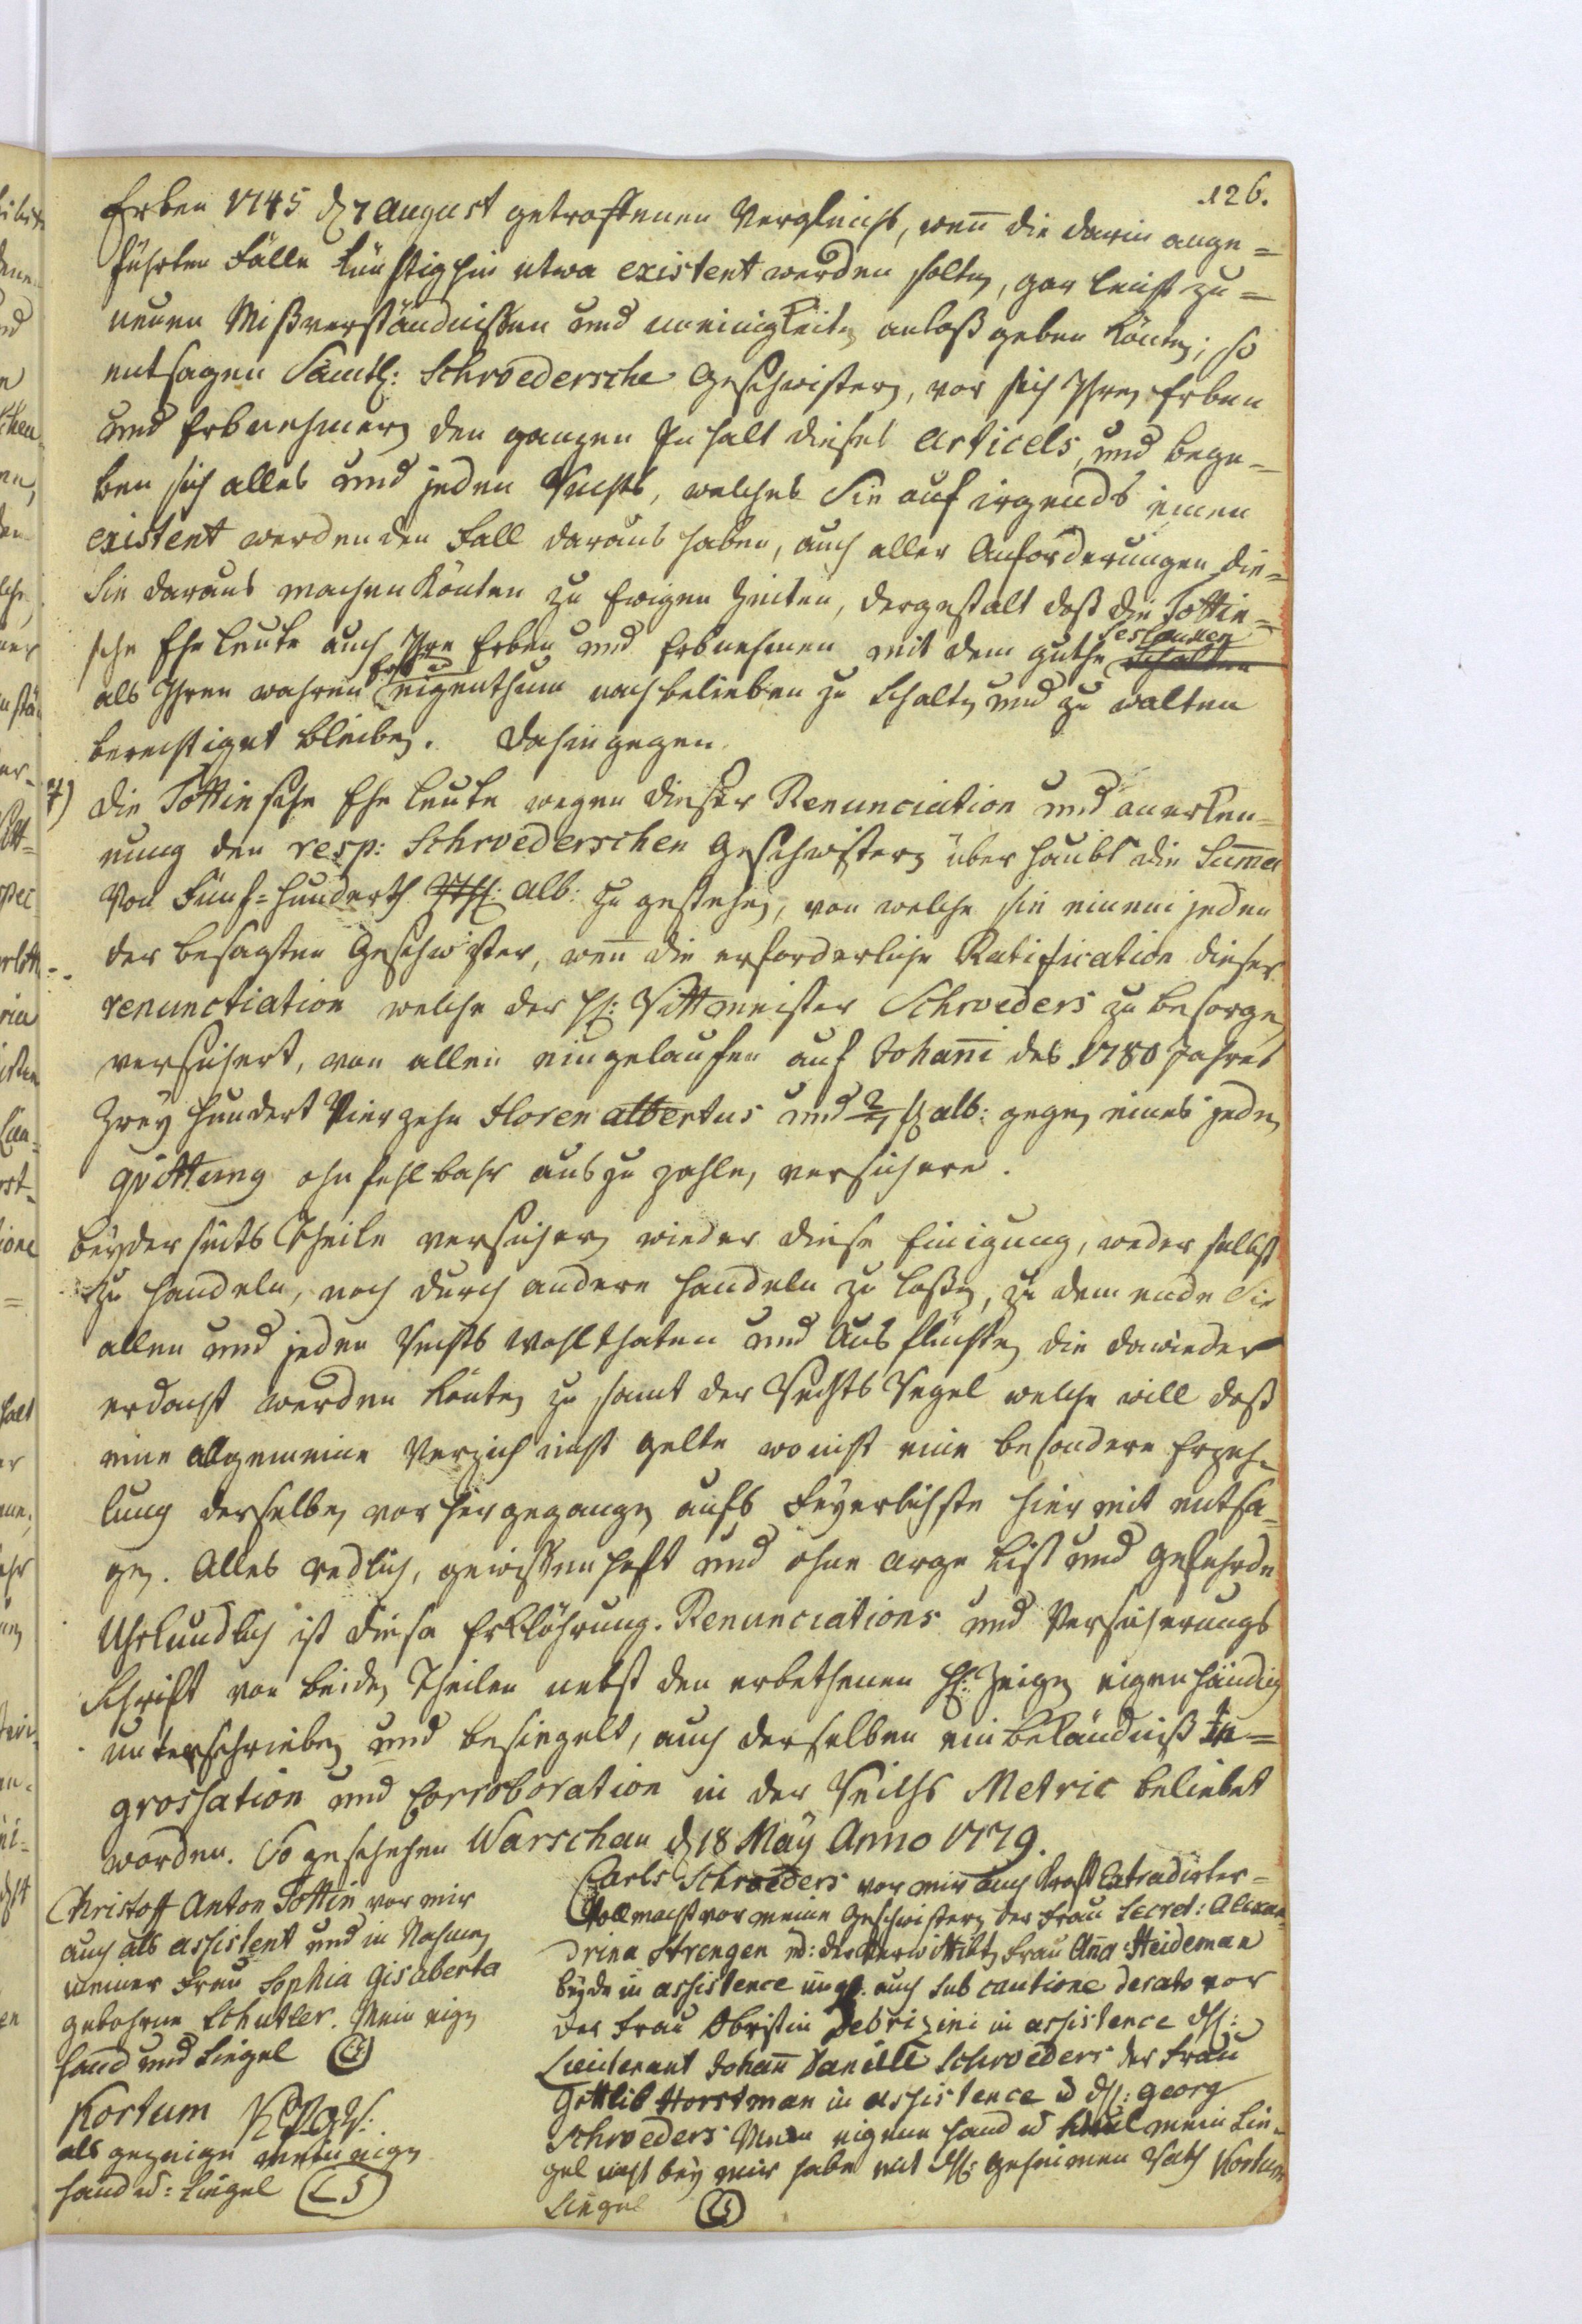 126.
Erben 1745 d 7 August getroffenen Vergleichs, wen̄ die darin ange=
führten Fälle künftig hin etwa existent werden solten, gar leicht zu=
neuen Mißverständnißen und uneinigkeiten anlaß geben könten; so
entsagen Sämtl: Schroedersche Geschwistern, vor sich Ihren Erben
und Erbnehmern den ganzen Inhalt dieses Articels, und bege=
ben sich alles und jeden Rechts, welches Sie auf irgends einen
existent werdenden Fall daraus haben, auch aller Anforderungen die=
Sie daraus machen könten zu Ewigen Zeiten, dergestalt daß die Tottin=
sche Ehe Leute auch Ihre Erben und Erbnehmen mit dem guthe
als Ihren wahren Erb eigenthum nach belieben zu schalten und zu walten
berechtiget bleiben. Dahingegen
7) die Tottinsche Ehe Leute wegen dieser Renunciation und anerken=
nung den resp: Schroederschen Geschwistern überhaubt die Sum̄a
Von Fünf=hunderth Rthl: alb: zu gestehen, von welche sie einem jeden
der besagten Geschwister, wen̄ die erforderliche Ratification dieser
renunctiation welche der H: Rittmeister Schroeders zu besorgen
versichert, von allen eingelaufen auf Johan̄i des 1780 Jahres
Zwey hundert Vierzehn Floren albertus und alb: gegen eines jeden
quittung ohnfehlbahr auszuzahlen, versichern.
beyderseits Theile versichern wieder diese Einigung, weder selbst
zu handeln, noch durch andere handeln zu laßen, zu dem ende Sie
allen und jeden Rechts Wohlthaten und Ausflüchten die dawieder
erdacht werden könten zu samt der Rechts Regel welche will daß
eine allgemeine Verzicht nicht gelte wo nicht eine besondere Erzeh=
lung derselben vorhergegangen aufs Feyerlichste hiermit entsa=
gen. Alles redlich, gewissenhaft und ohne arge List und gefehrde
Uhrkundlich ist diese Erklährung. Renunciations und Versicherungs
Schrift von beiden Theilen nebst den erbethenen H: Zeigen eigenhändig
unterschrieben und besiegelt, auch derselben ein beständniß In=
grossation und Corroboration in der Reichs Metric beliebet
worden. So geschehen Warschau d 18 May Anno 1779.
Christoff Anton Tottin vor mir
auch als assistent und in Nahmen
meiner Frau Sophia Gisaberta
gebohrne Schutler. Mein eigen
hand und Siegel (LS)
Kortum
als gezeige mein eigen
hand u: Siegel (LS)
Carls Schroeders vor mir auch Kraft Extradirter=
Vollmacht vor meine Geschwistern der Frau Secret: Alexan=
drina Strengen u: der Verwittibten Frau An̄a Heideman
beyde in assistence auch sub cautione de rato vor
der Frau Obristin Debrizini in assistence H:
Lieutenant Johan̄ Daniell Schroeders der Frau
Gottlib Horstman in assistence H: Georg
Schroeders Mein eigene hand u mein Sie=
gel nicht bey mir habe mit H: Geheimen Rath Kortum
Siegel (LS)